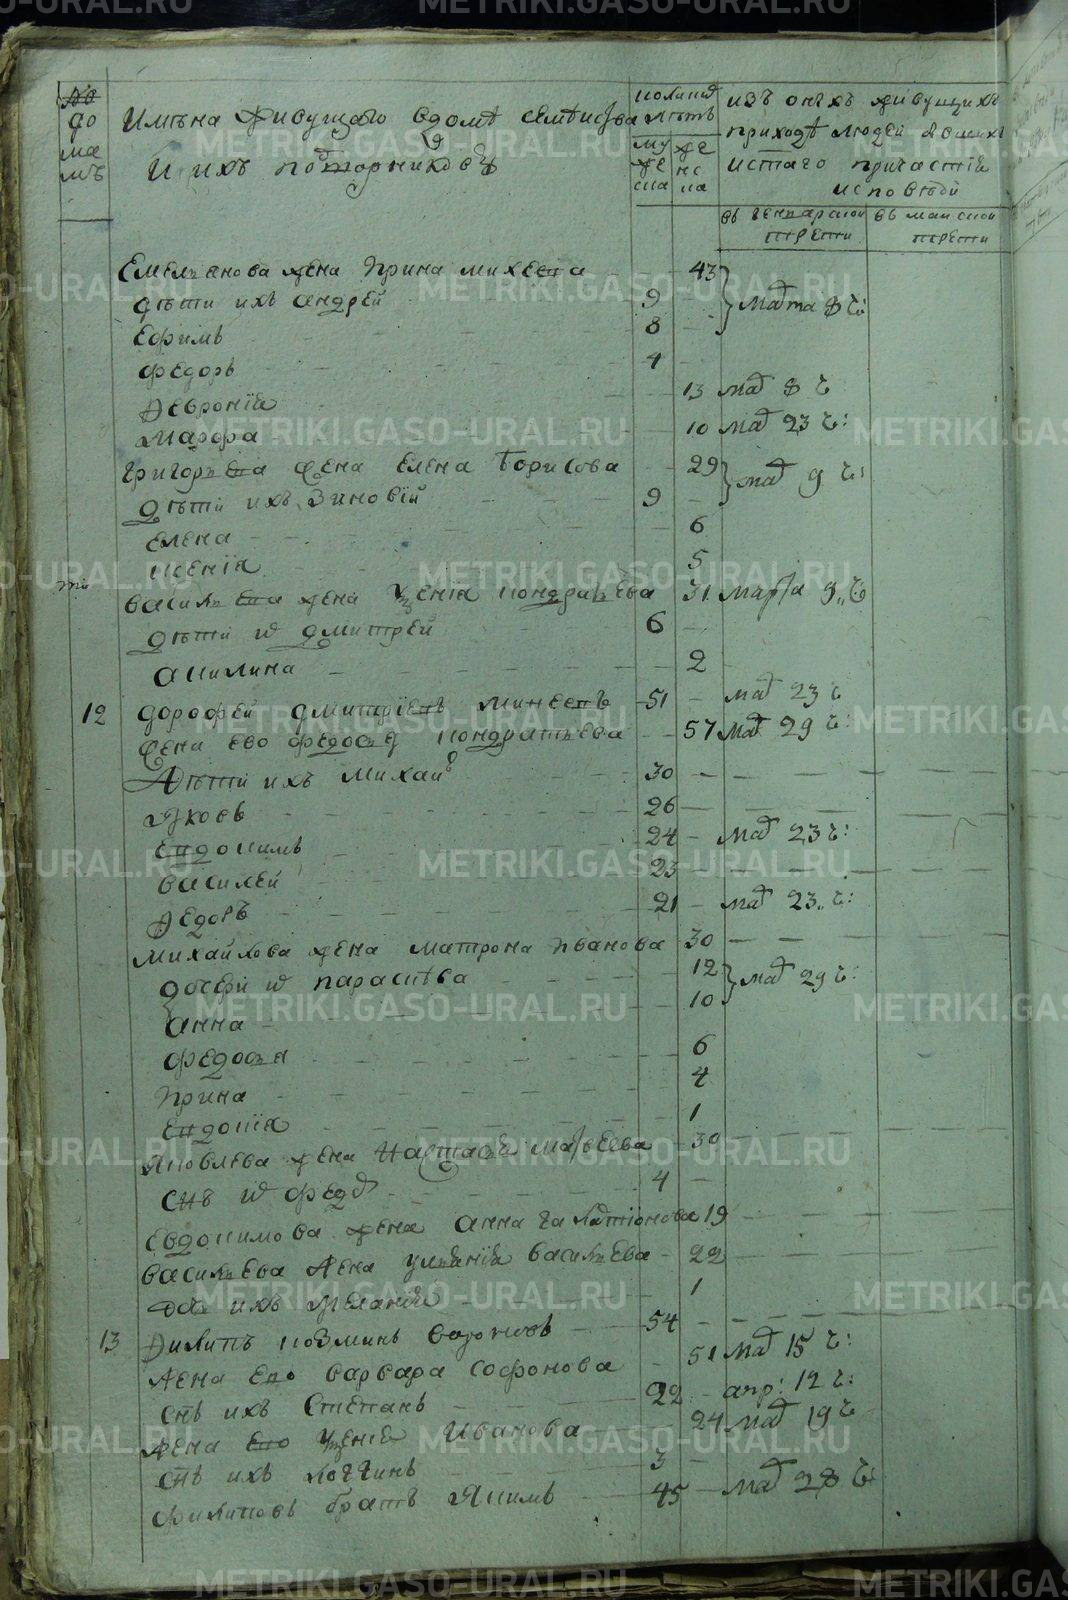 №
до
ма
мъ
Имѣна живущаго вдомѣ семѣисва
и ихъ подворниковъ
коликѣ
лѣтъ
му
же
ска
же
нс
ка
изъ онѣхъ живущихъ
приходѣ людей явших
истаго причастій
исповѣди
въ генварской
трети
въ маиской
трети
Емельянова жена Ирина михеева 43
дѣти ихъ андрей 9 мада 8 ч:
Ефимъ 8
Федоръ 4
Февронїя 13 мад 8 ч
Марфа 10 мад 23 ч:
григорьева жена Елена Борисова 29 мад 9 ч:
дѣти ихъ Зиновїй 9
Елена 6
ксенїя 5
васильева жена Ксенїя кондратьева 31 марта 9 ч
дѣти и Дмитрей 6
акилина 2
12 дорофей дмитрїевъ минеевъ 51 мад 23 ч
жена ево федосья кондратьева 57 мад 29 ч:
дѣти ихъ михаил 30
Яковъ 26
Евдокимъ 24 мад 23 ч:
василей 23
Федоръ 21 мад 23 ч:
михайлова жена матрона Иванова 30
дочери и парасѣва 12 мад 29 ч:
анна 10
федосья 6
Ирина 4
Евдокїя 1
Яковлева жена Настасья матвеева 30
снъ и федо 4
Евдокимова жена анна галактїонова 19
васильева жена улянїя васильева 22
дч ихъ меланїя 1
13 Филипъ козминъ 54
жена ево варвара софонова 51 мад 15 ч:
снъ ихъ Степанъ 22 апр: 12 ч:
жена ево Ксенїя Иванова 24 мад 19 ч
снъ ихъ логгинъ 3
филиповъ братъ Якимъ 45 мад 28 ч:
METRIKI.GASO-URAL.RU